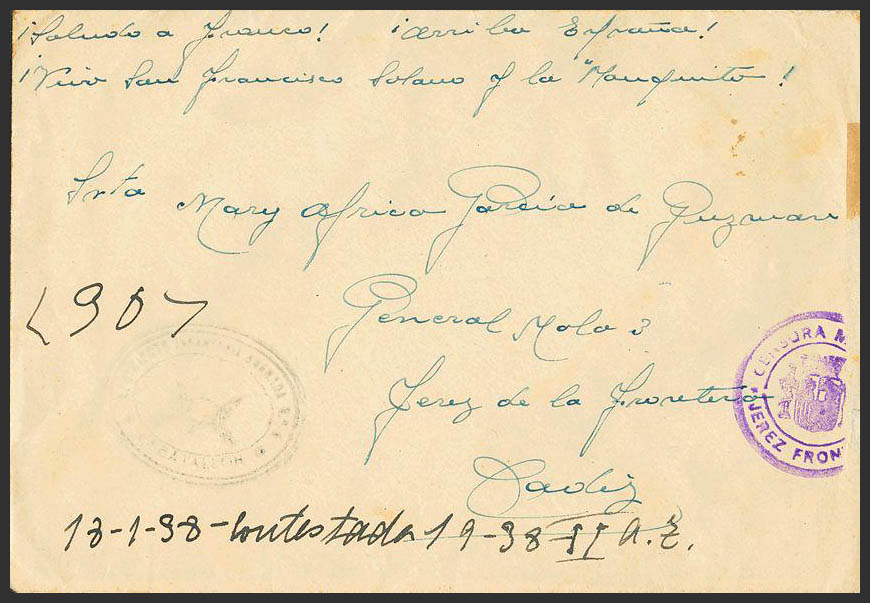 ¡Saludo a Franco! ¡Arriba España!
¡Viva San Francisco Solano y la "Manquita"!
Srta
Mary Africa Garcia de Guzman
<907
General Mola 3
CENSURA
JEREZ FRON
Jerez de la Frontera
Cadiz
13-1-38-Contestada 19-38-II A.E.